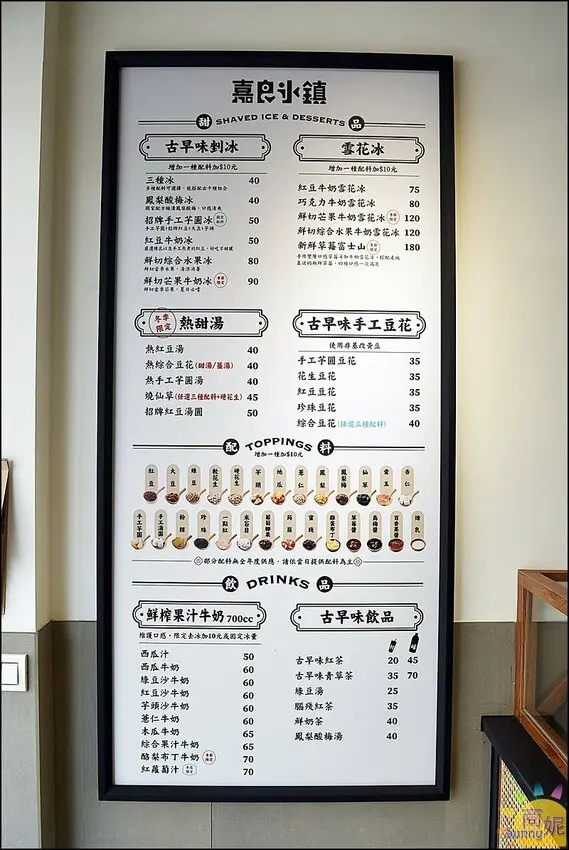 嘉良冰鎮
甜 SHAVED ICE & DESSERTS 品
古早味剉冰
增加一種配料加$10元
三種冰 40
鳳梨酸梅冰 40
招牌手工芋圓冰 50
手工芋圓+招牌紅豆+大豆+芋頭
紅豆牛奶冰 50
鮮切綜合水果冰 80
鮮切當季水果，清涼消暑
鮮切芒果牛奶冰 季節限定 90
雪花冰
增加一種配料加$10元
紅豆牛奶雪花冰 75
巧克力牛奶雪花冰 80
鮮切芒果牛奶雪花冰 季節限定 120
鮮切綜合水果牛奶雪花冰 120
新鮮草莓富士山 季節限定 180
冬季限定 熱甜湯
熱紅豆湯 40
熱綜合豆花(甜湯/薑湯) 40
熱手工芋圓湯 40
燒仙草(任選三種配料+硬花生) 45
招牌紅豆湯圓 50
古早味手工豆花
使用非基改黃豆
手工芋圓豆花 35
花生豆花 35
紅豆豆花 35
珍珠豆花 35
綜合豆花(任選三種配料) 40
配 TOPPINGS 料
增加一種加$10元
紅豆 大豆 綠豆 軟花生 硬花生 芋頭 地瓜 薏仁 鳳梨 鳳梨梅 仙草 愛玉 杏仁
手工芋圓 手工湯圓 粉粿 珍珠 一點紅 米苔目 葡萄椰果 蒟蒻 蜜餞 雞蛋布丁 草莓醬 烏梅醬 百香果醬 煉乳
部分配料無全年度供應，請依當日提供配料為主
飲 DRINKS 品
鮮榨果汁牛奶 700cc
維護口感，限定去冰加10元或固定冰量
西瓜汁 50
西瓜牛奶 60
綠豆沙牛奶 60
紅豆沙牛奶 60
芋頭沙牛奶 60
薏仁牛奶 60
木瓜牛奶 65
綜合果汁牛奶 65
酪梨布丁牛奶 季節限定 70
紅蘿蔔汁 70
古早味飲品
古早味紅茶 20 45
古早味青草茶 35 70
綠豆湯 25
腦殘紅茶 35
鮮奶茶 40
鳳梨酸梅湯 40
商妮
sunny